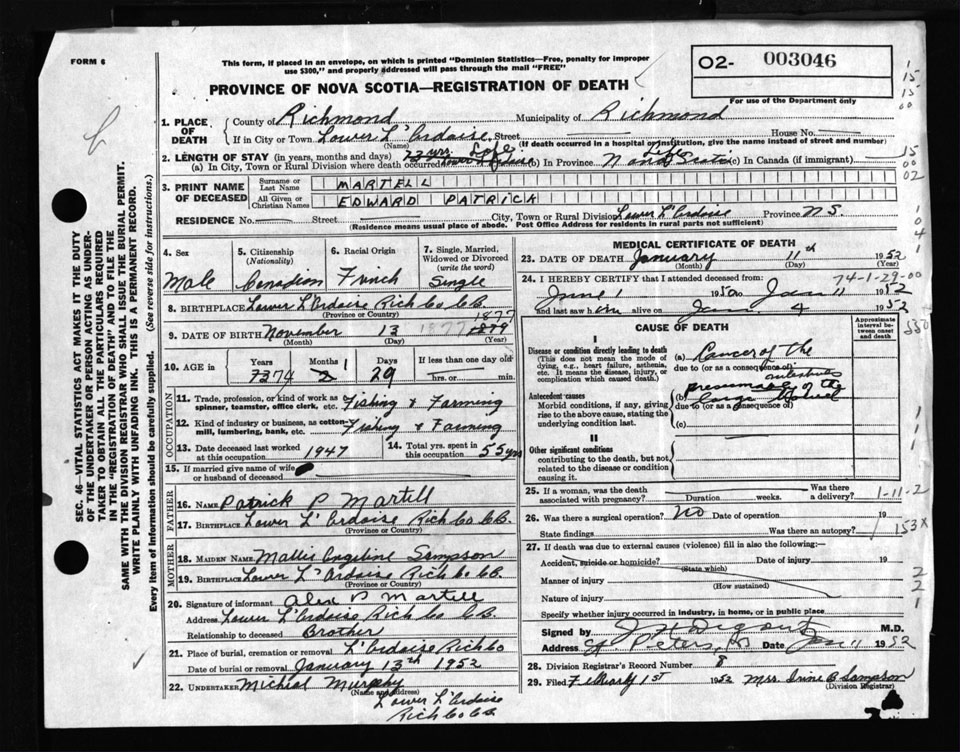 FORM 6
This form, if placed in an envelope, on which is printed "Dominion Statistics—Free, penalty for improper
use $300," and properly addressed will pass through the mail "FREE"
O2- 003046
For use of the Department only
PROVINCE OF NOVA SCOTIA—REGISTRATION OF DEATH
1. PLACE OF DEATH { County of Richmond Municipality of Richmond
If in City or Town Lower L'Ardoise Street House No.
(Name) (If death occurred in a hospital or institution, give the name instead of street and number)
2. LENGTH OF STAY (in years, months and days) 73 yrs. Life Life
(a) In City, Town or Rural Division where death occurred Lower L'Ardoise (b) In Province Nova Scotia (c) In Canada (if immigrant)
3. PRINT NAME OF DECEASED { Surname or Last Name MARTELL
All Given or Christian Names EDWARD PATRICK
RESIDENCE No. Street City, Town or Rural Division Lower L'Ardoise Province N.S.
(Residence means usual place of abode. Post Office Address for residents in rural parts not sufficient)
4. Sex 5. Citizenship (Nationality) 6. Racial Origin 7. Single, Married, Widowed or Divorced (write the word)
Male Canadian French Single
8. BIRTHPLACE Lower L'Ardoise Rich Co C.B.
(Province or Country) 1877
9. DATE OF BIRTH November 13 1877 1878
(Month) (Day) (Year)
10. AGE in Years Months Days If less than one day old
73 74 2 1 29 hrs. or min.
OCCUPATION
11. Trade, profession, or kind of work as spinner, teamster, office clerk, etc. Fishing & Farming
12. Kind of industry or business, as cotton-mill, lumbering, bank, etc. Fishing & Farming
13. Date deceased last worked at this occupation 1947 14. Total yrs. spent in this occupation 55 yrs
15. If married give name of wife or husband of deceased
FATHER
16. NAME Patrick P Martell
17. BIRTHPLACE Lower L'Ardoise Rich Co C.B.
(Province or Country)
MOTHER
18. MAIDEN NAME Angeline Sampson
19. BIRTHPLACE Lower L'Ardoise Rich Co C.B.
(Province or Country)
20. Signature of informant Alex P Martell
Address Lower L'Ardoise Rich Co C.B.
Relationship to deceased Brother
21. Place of burial, cremation or removal L'Ardoise Rich Co
Date of burial or removal January 13th 1952
22. UNDERTAKER Micheal Murphy
(Name and address)
Lower L'Ardoise
Rich Co C.B.
MEDICAL CERTIFICATE OF DEATH
23. DATE OF DEATH January 11th 1952
(Month) (Day) (Year)
74-1-29-00
24. I HEREBY CERTIFY that I attended deceased from:
June 1950 to Jan 11 1952
and last saw him alive on Jan. 4 1952
CAUSE OF DEATH
Approximate interval between onset and death
I
Disease or condition directly leading to death
(This does not mean the mode of dying, e.g., heart failure, asthenia, etc. It means the disease, injury, or complication which caused death.)
(a) Cancer of the
due to (or as a consequence of)
Antecedent causes
Morbid conditions, if any, giving rise to the above cause, stating the underlying condition last.
(b) presumably of the
due to (or as a consequence of)
large bowel
(c)
II
Other significant conditions
contributing to the death, but not related to the disease or condition causing it.
25. If a woman, was the death associated with pregnancy? Duration weeks. Was there a delivery?
1-11-2
26. Was there a surgical operation? No Date of operation 19
State findings Was there an autopsy?
153X
27. If death was due to external causes (violence) fill in also the following:—
Accident, suicide or homicide? Date of injury 19
(State which)
Manner of injury
(How sustained)
Nature of injury
Specify whether injury occurred in industry, in home, or in public place
Signed by M.D.
Address St. Peters, Date Jan 11 1952
28. Division Registrar's Record Number 8
29. Filed February 1st 1952 Mrs. Irine B Sampson
(Division Registrar)
SEC. 46—VITAL STATISTICS ACT MAKES IT THE DUTY
OF THE UNDERTAKER OR PERSON ACTING AS UNDER-
TAKER TO OBTAIN ALL THE PARTICULARS REQUIRED
IN THE "REGISTRATION OF DEATH" AND TO FILE THE
SAME WITH THE DIVISION REGISTRAR WHO SHALL ISSUE THE BURIAL PERMIT.
WRITE PLAINLY WITH UNFADING INK. THIS IS A PERMANENT RECORD.
Every item of information should be carefully supplied. (See reverse side for instructions.)